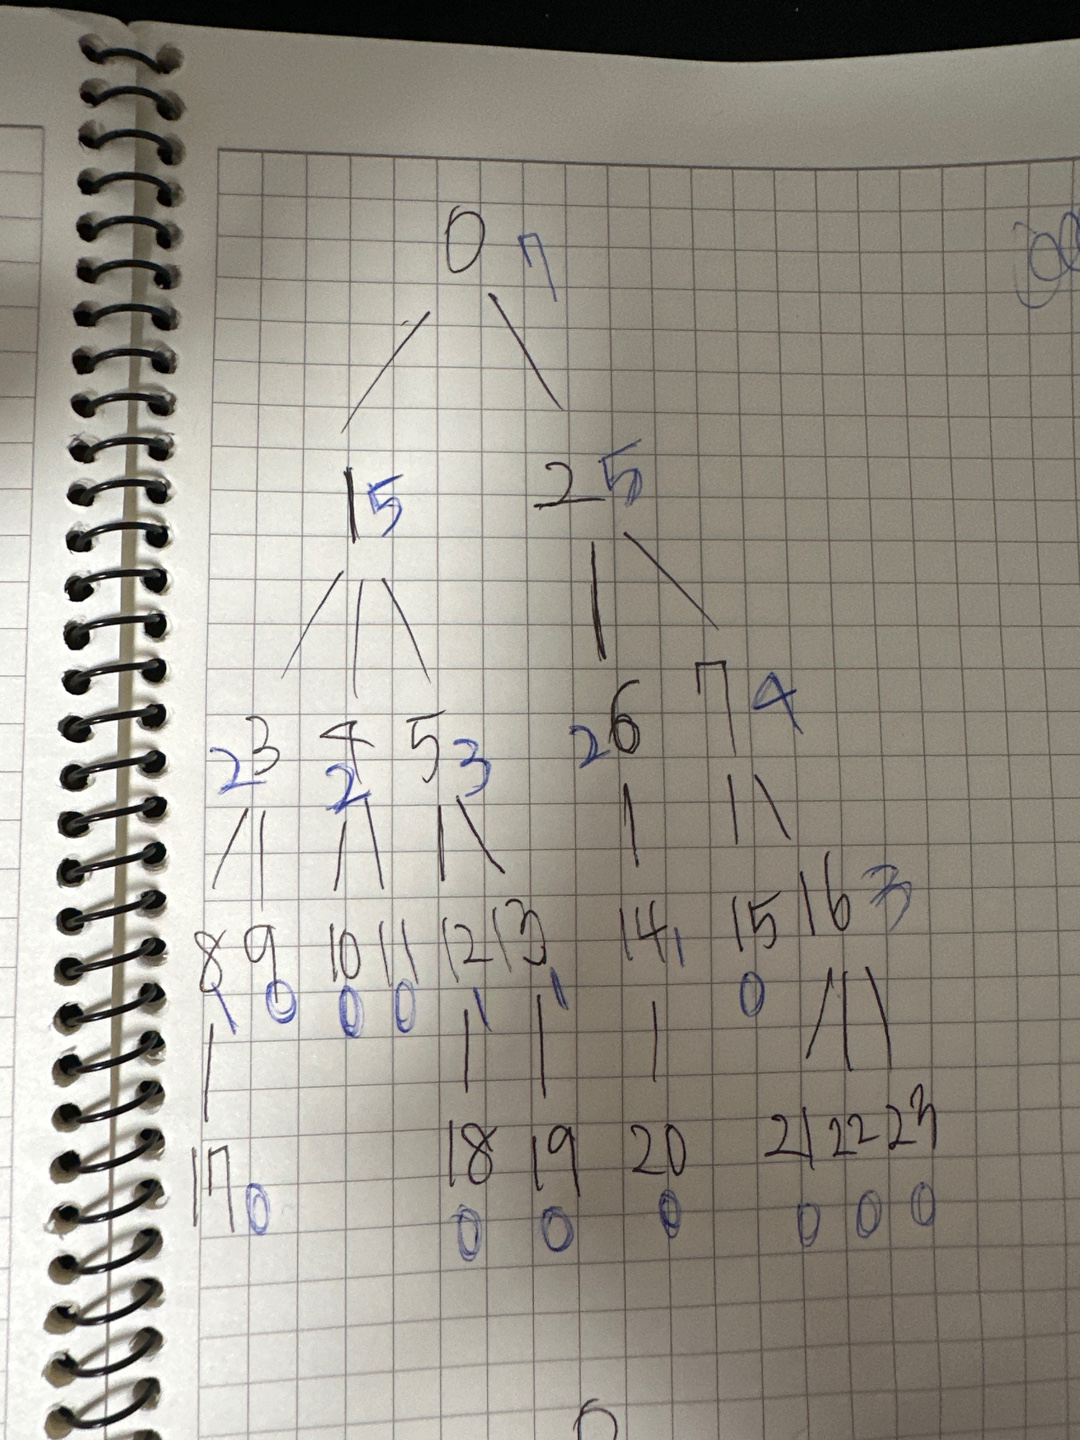 0 7
1 5 2 5
2 3 4 5 3 2 6 7 4
2
8 9 10 11 12 13 14 1 15 16 3
1 0 0 0 1 1 0
17 0 18 19 20 21 22 23
0 0 0 0 0 0